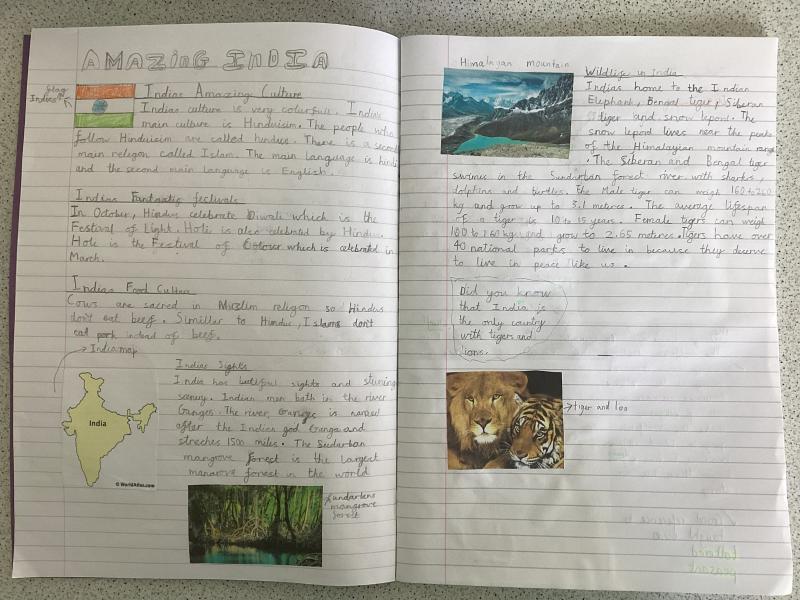 AMAZING INDIA
flag
Indias
Indias Amazing Culture
Indias culture is very colourfull. Indias
main culture is Hinduisim. The people who
follow Hinduisim are called hindues. There is a second
main relegon called Islam. The main language is hindi
and the second main language is English.
Indias Fantastic festivals
In October, Hindus celebrate Diwali which is the
Festival of Light. Holi is also celebrated by Hindus.
Hole is the Festival of Colour which is celebrated in
March.
Indias Food Culture
Cows are sacred in Muslim relegon so Hindus
don't eat beef. Similler to Hindus, Islams don't
eat pork instead of beef.
India map
India
© WorldAtlas.com
Indias Sights
India has butiful sights and stuning
senury. Indian men bath in the river
Ganges. The river, Ganges is named
after the Indian god Ganga and
streches 1500 miles. The Sudarban
mangrove forest is the largest
mangrove forest in the world
Sundarbans
mangrove
forest
Himalayan mountain
Wildlife in India
Indias home to the Indian
Elephant, Bengal tiger, Siberan
tiger and snow lepord. The
snow lepord lives near the peaks
of the Himalayian mountain range
. The Siberan and Bengal tiger
swimes in the Sundurban forest river with sharks,
dolphins and turtles. The Male tiger can weigh 160 to 260
kg and grow up to 3.1 metres. The average lifespan
of a tiger is 10 to 15 years. Female tigers can weigh
100 to 160 kg and grow to 2.65 metres. Tigers have over
40 national parks to live in because they deserve
to live in peace like us.
Did you know
that India is
the only country
with tigers and
lions.
tiger and loo